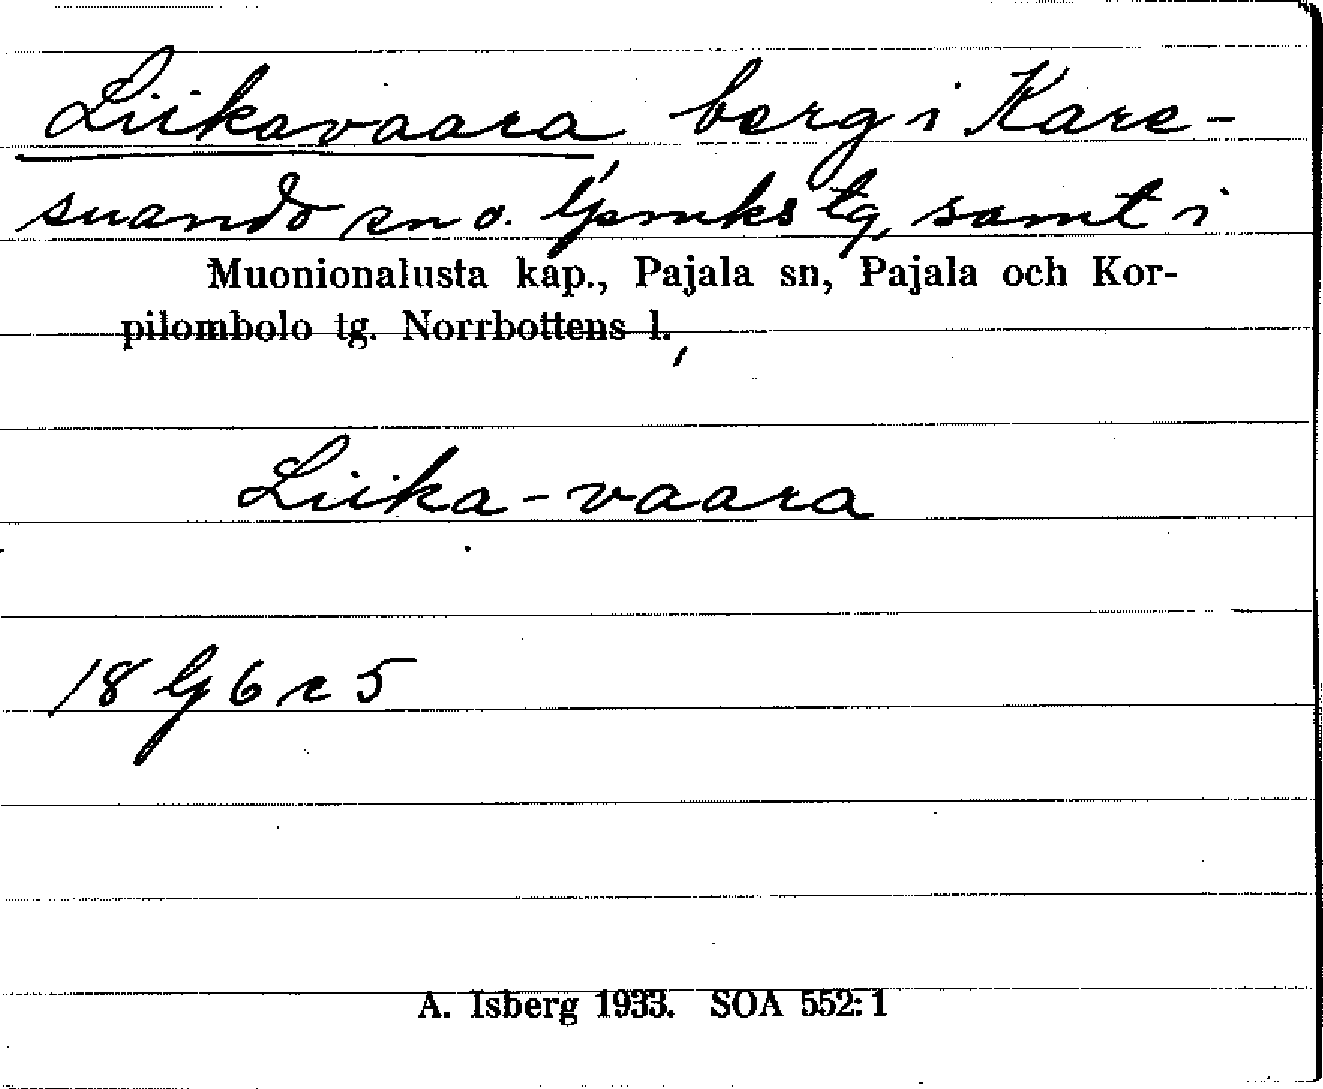 Liikavaara, berg i Kare-
suando sn o. lpmks tg, samt i
Muonionalusta kap., Pajala sn, Pajala och Kor-
pilombolo tg. Norrbottens l.,
Liika-vaara
18 G 6 c 5
A. Isberg 1933. SOA 552:1